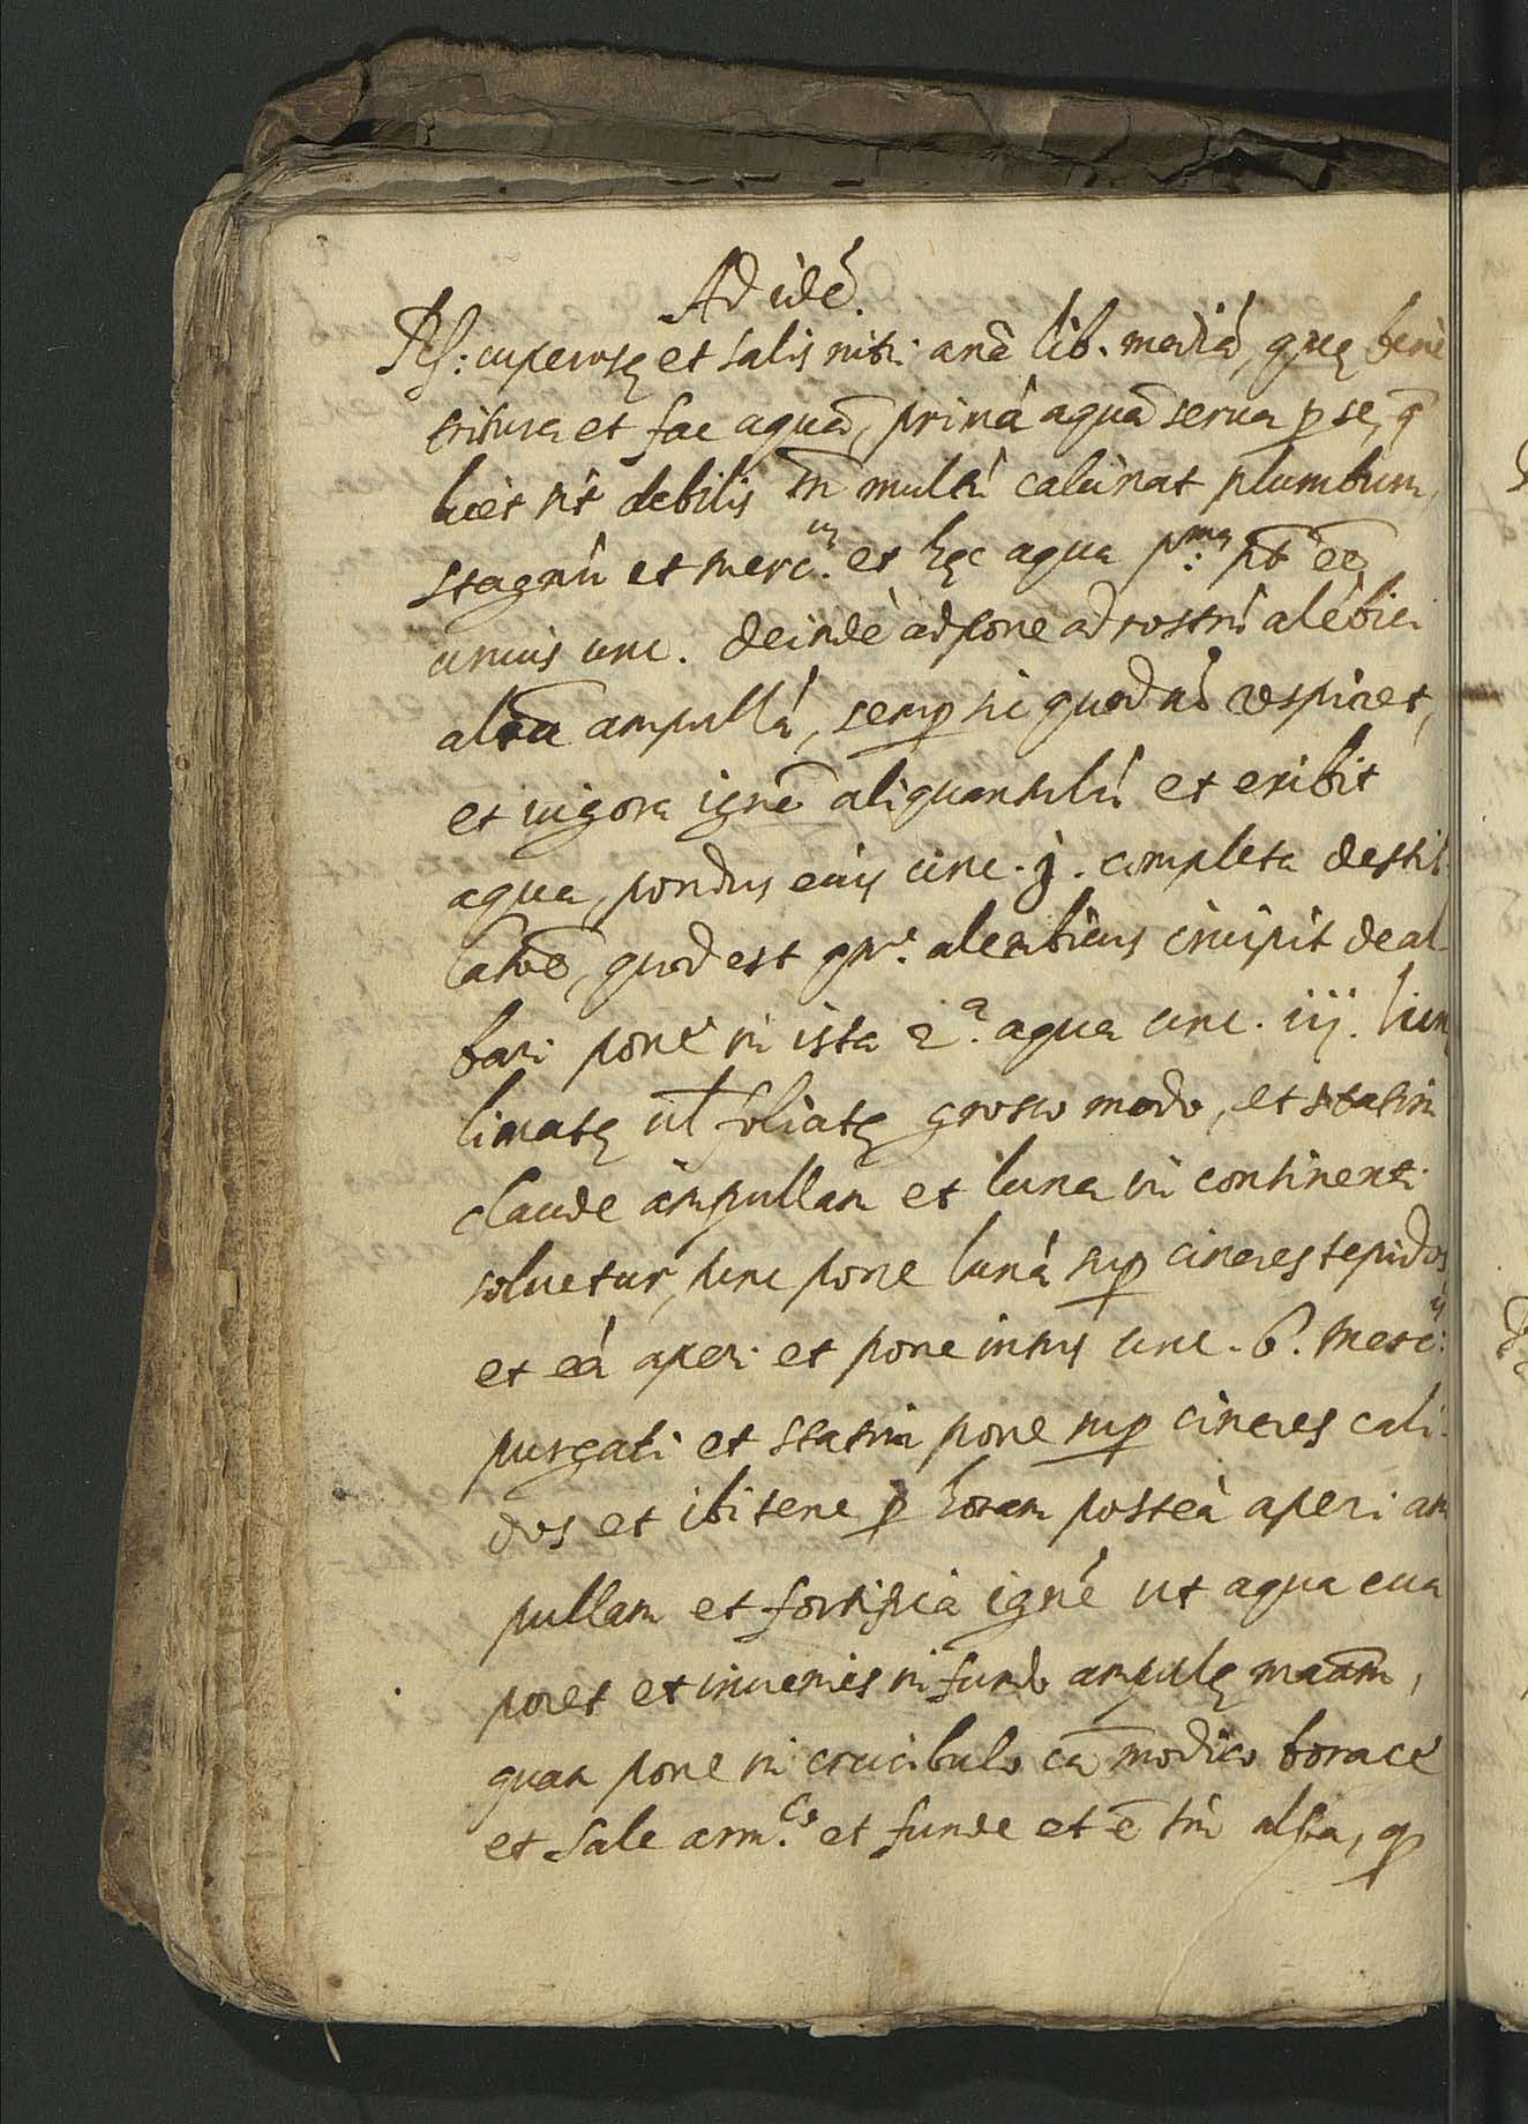 Ad idē.
Rſ: cuperosę et salis nitri anā lib. mediā, quę bene
tritura et fac aquā, primā aquā serua ꝑ se, q̄
licèt sit debilis tñ multū calcinat plumbum,
stagnū et merc.um et hęc aqua p.ma pōt eē
unius unc. deindè adpone ad rostrū alēbici
aliā ampullā, semꝑ sic quod nō respiret,
et uigora ignē aliquantulū et exibit
aqua, pondus eius unc. j. completa destil-
latiōe, quod est qn̄. alembicus incipit deal-
bari pone in ista 2.a aqua unc. iij. lun
limatę ul̄ foliatę grosso modo, et statim
claude ampullam et luna in continenti
soluetur, tunc pone lunā suꝑ cineres tepidos
et eā aperi et pone intus unc. 6. merc.ij
purgati et statim pone suꝑ cineres cali-
dos et ibi tene ꝑ horam posteà aperi am
pullam et fortifica ignē ut aqua eua
poret et inuenies in fundo ampulę maām,
quam pone in crucibulo cū modico borace
et sale arm.co et funde et ē tm̄ alba, ꝙ